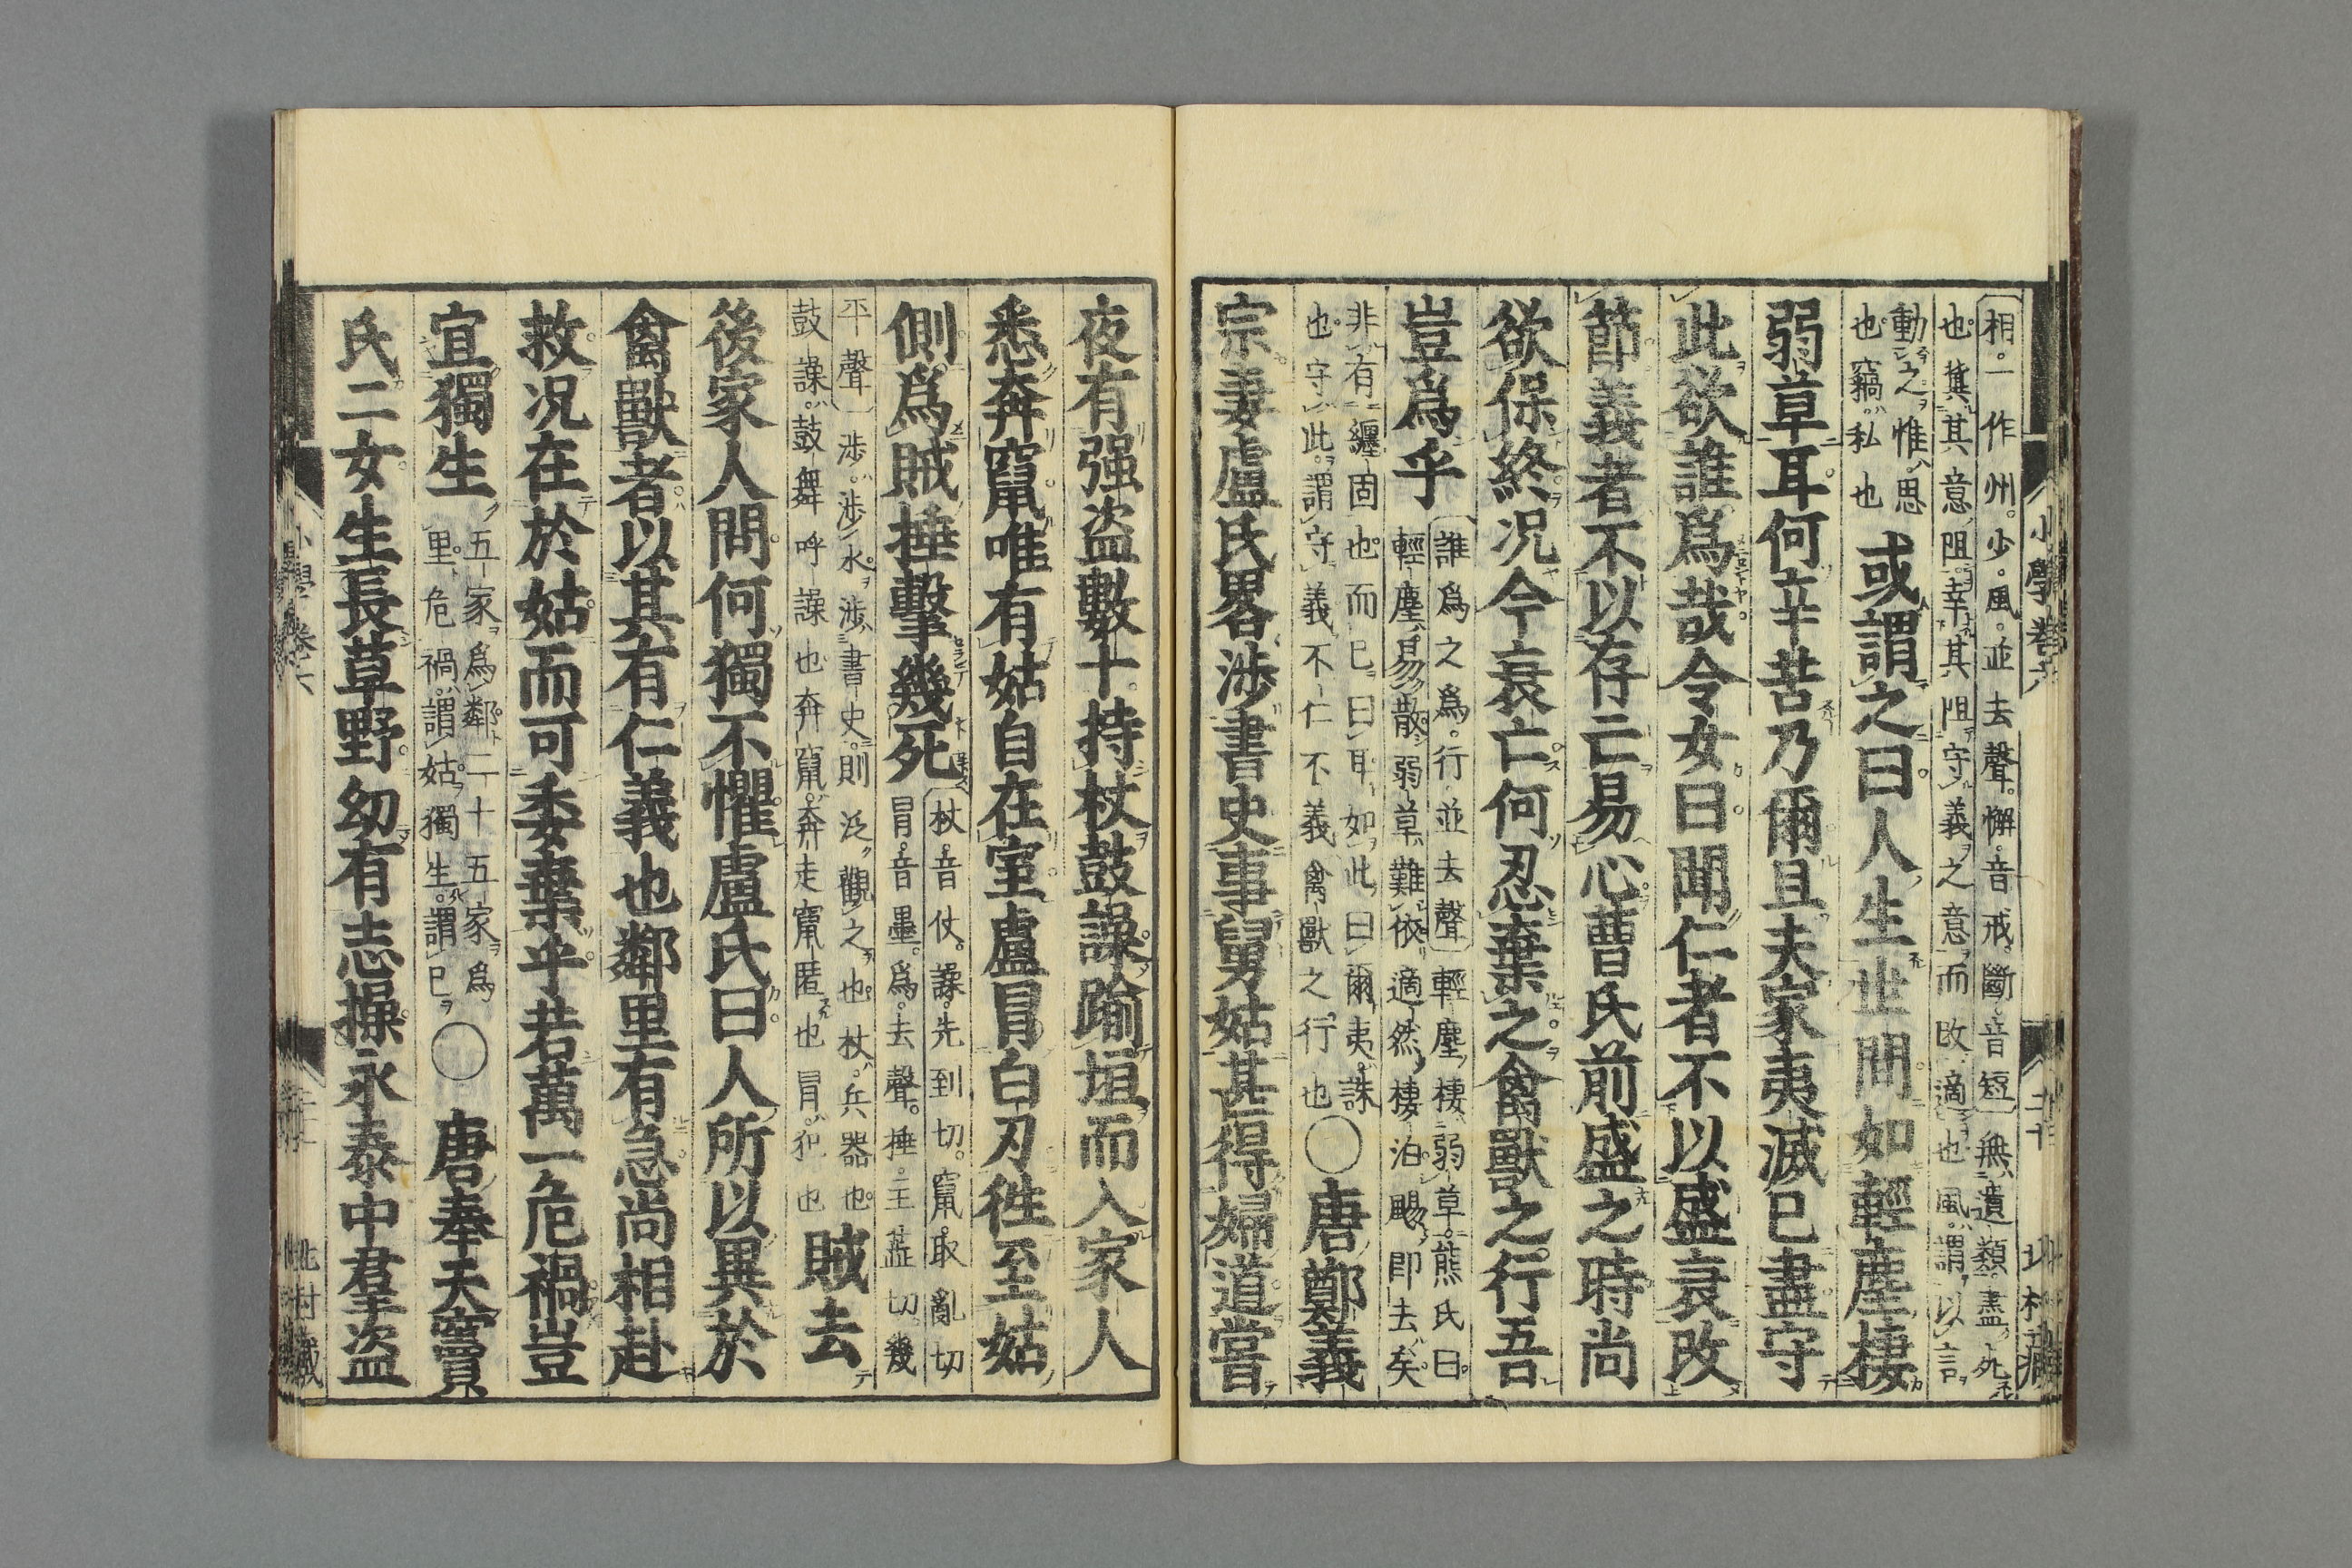 相一作州少風並去聲懈音戒斷音短無遺類盡死
也冀其意阻幸其阻守義之意而改適也風謂以言
動之惟思
也竊私也
或謂之曰人生世間如輕塵棲
弱草耳何辛苦乃爾且夫家夷滅已盡守
此欲誰爲哉令女曰聞仁者不以盛衰改
節義者不以存亡易心曹氏前盛之時尚
欲保終况今衰亡何忍棄之禽獸之行吾
豈爲乎
誰爲之爲行並去聲輕塵棲弱草熊氏曰
輕塵易散弱草難依適然棲泊颺即去矣
非有纏固也而已曰耳如此曰爾夷誅
也守此謂守義不仁不義禽獸之行也
○唐鄭義
宗妻盧氏畧渉書史事舅姑甚得婦道嘗
小學卷六
夜有强盗數十持杖鼓譟踰垣而入家人
悉奔竄唯有姑自在室盧冒白刃徃至姑
側爲賊捶擊幾死
杖音仗譟先到切竄取亂切
冒音墨爲去聲捶主蘂切幾
平聲渉渉水渉書史則泛觀之也杖兵器也
鼓譟鼓舞呼譟也奔竄奔走竄匿也冒犯也
賊去
後家人問何獨不懼盧氏曰人所以異於
禽獸者以其有仁義也鄰里有急尚相赴
救况在於姑而可委棄乎若萬一危禍豈
宜獨生
五家爲鄰二十五家爲
里危禍謂姑獨生謂已
○唐奉天竇
氏二女生長草野幼有志操永泰中羣盗
小學卷六